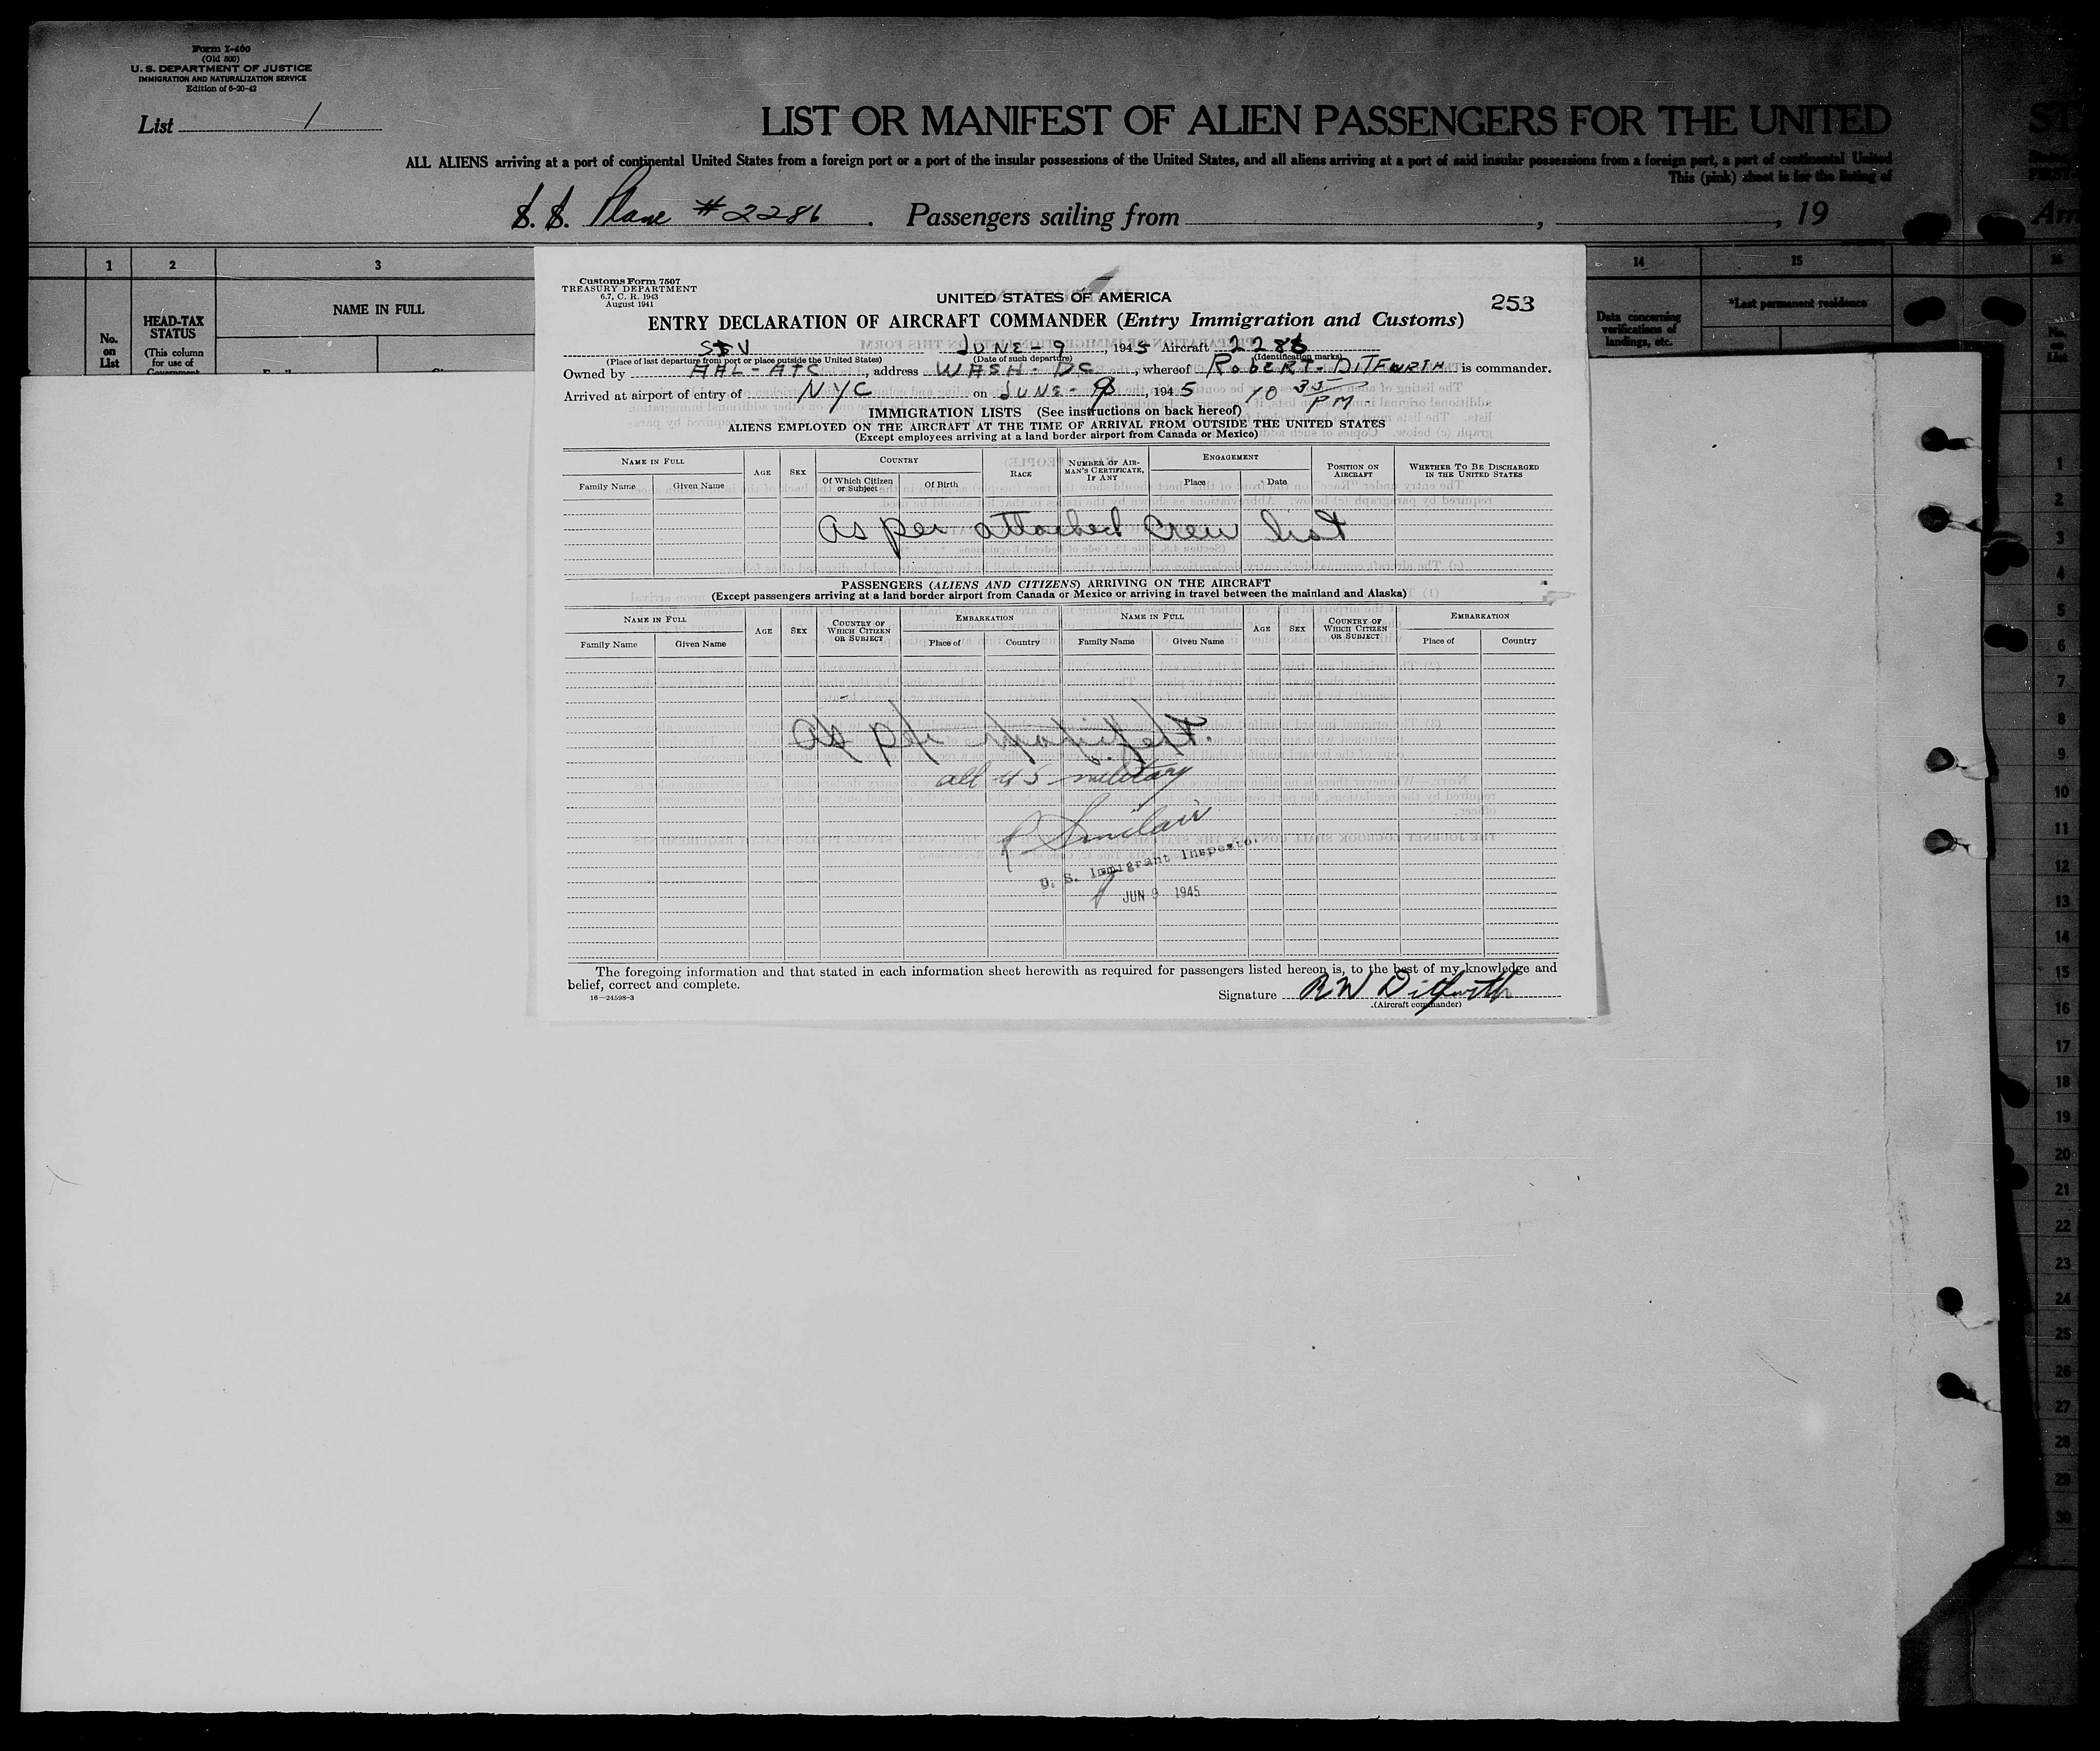 Form I-400
(Old 500)
U. S. DEPARTMENT OF JUSTICE
IMMIGRATION AND NATURALIZATION SERVICE
Edition of 6-20-42
List 1
LIST OR MANIFEST OF ALIEN PASSENGERS FOR THE UNITED
ST
ALL ALIENS arriving at a port of continental United States from a foreign port or a port of the insular possessions of the United States, and all aliens arriving at a port of said insular possessions from a foreign port, a port of continental United
This (pink) sheet is for the listing of
S. S. Plane #2286. Passengers sailing from , , 19
Arr
1 2 3 14 15 16
No. on List
HEAD-TAX STATUS
(This column for use of Government
NAME IN FULL
Data concerning verifications of landings, etc.
*Last permanent residence
No. on List
Customs Form 7507
TREASURY DEPARTMENT
6.7, C. R. 1943
August 1941
UNITED STATES OF AMERICA
253
ENTRY DECLARATION OF AIRCRAFT COMMANDER (Entry Immigration and Customs)
JUNE - 9, 1945 Aircraft 2286
(Place of last departure from port or place outside the United States) (Date of such departure) (Identification marks)
Owned by AAL - ATC, address WASH - DC, whereof ROBERT - DITFWRTH is commander.
Arrived at airport of entry of NYC on JUNE - 9, 1945 10 35 PM -
IMMIGRATION LISTS (See instructions on back hereof)
ALIENS EMPLOYED ON THE AIRCRAFT AT THE TIME OF ARRIVAL FROM OUTSIDE THE UNITED STATES
(Except employees arriving at a land border airport from Canada or Mexico)
NAME IN FULL AGE SEX COUNTRY RACE NUMBER OF AIRMAN'S CERTIFICATE, IF ANY ENGAGEMENT POSITION ON AIRCRAFT WHETHER TO BE DISCHARGED IN THE UNITED STATES
Family Name Given Name Of Which Citizen or Subject Of Birth Place Date
As per attached Crew list
PASSENGERS (ALIENS AND CITIZENS) ARRIVING ON THE AIRCRAFT
(Except passengers arriving at a land border airport from Canada or Mexico or arriving in travel between the mainland and Alaska)
NAME IN FULL AGE SEX COUNTRY OF WHICH CITIZEN OR SUBJECT EMBARKATION NAME IN FULL AGE SEX COUNTRY OF WHICH CITIZEN OR SUBJECT EMBARKATION
Family Name Given Name Place of Country Family Name Given Name Place of Country
As per manifest.
all US military
Sinclair
U. S. Immigrant Inspector
JUN 9 1945
The foregoing information and that stated in each information sheet herewith as required for passengers listed hereon is, to the best of my knowledge and
belief, correct and complete.
16—24598-3
Signature RW Ditfwrth
(Aircraft commander)
1
2
3
4
5
6
7
8
9
10
11
12
13
14
15
16
17
18
19
20
21
22
23
24
25
26
27
28
29
30